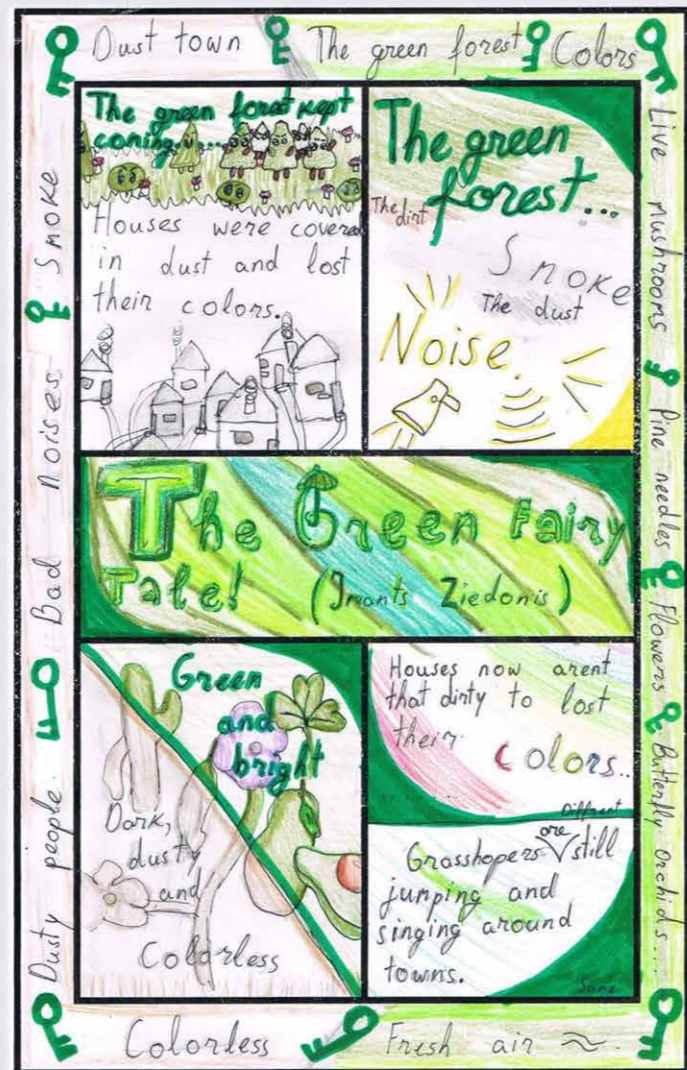 Dust town The green forest Colors
Live mushrooms Pine needles Flowers Butterfly Orchids...
Smoke
Bad noises
Dusty people
The green forest kept
coming.....
Houses were covered
in dust and lost
their colors.
The green
forest...
The dirt
Smoke
The dust
Noise.
The Green Fairy
Tale! (Imants Ziedonis)
Green
and
bright
Dark,
dusty
and
Colorless
Houses now arent
that dirty to lost
their
colors..
Diffrent
Grasshopers are still
jumping and
singing around
towns.
Same
Colorless Fresh air